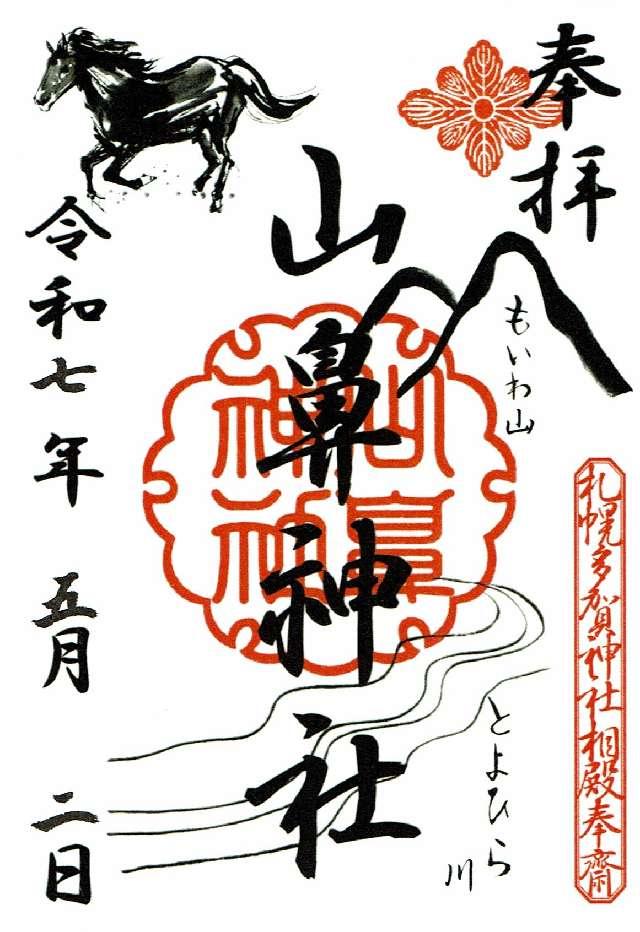 奉拝
もいわ山
札幌多加賀神社相殿奉齋
とよひら川
山鼻神社
山鼻神社
令和七年 五月 二日